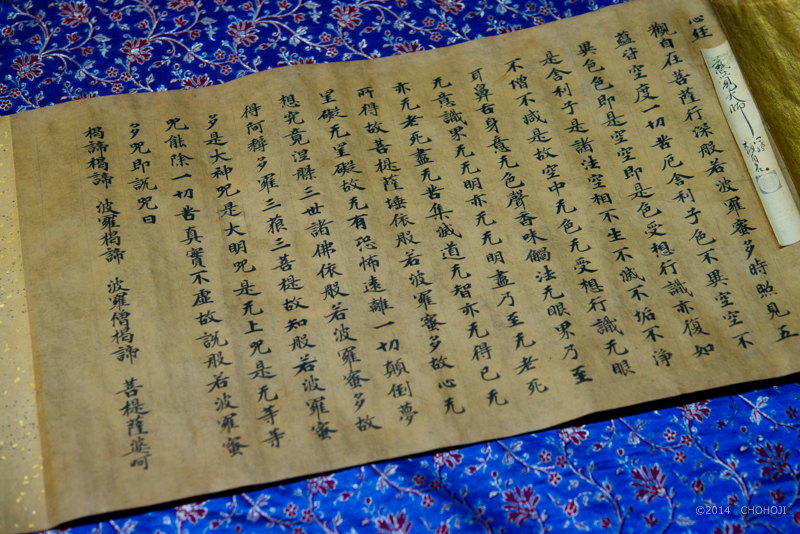 心経
觀自在菩薩行深般若波羅蜜多時照見五
蘊皆空度一切苦厄舍利子色不異空空不
異色色即是空空即是色受想行識亦復如
是舍利子是諸法空相不生不滅不垢不淨
不增不減是故空中无色无受想行識无眼
耳鼻舌身意无色聲香味觸法无眼界乃至
无意識界无无明亦无无明盡乃至无老死
亦无老死盡无苦集滅道无智亦无得已无
所得故菩提薩埵依般若波羅蜜多故心无
罣礙无罣礙故无有恐怖遠離一切顛倒夢
想究竟涅槃三世諸佛依般若波羅蜜多故
得阿耨多羅三藐三菩提故知般若波羅蜜
多是大神咒是大明咒是无上咒是无等等
咒能除一切苦真實不虛故說般若波羅蜜
多咒即說咒曰
揭諦揭諦 波羅揭諦 波羅僧揭諦 菩提薩婆呵
慈覺大師
©2014 CHOHOJI